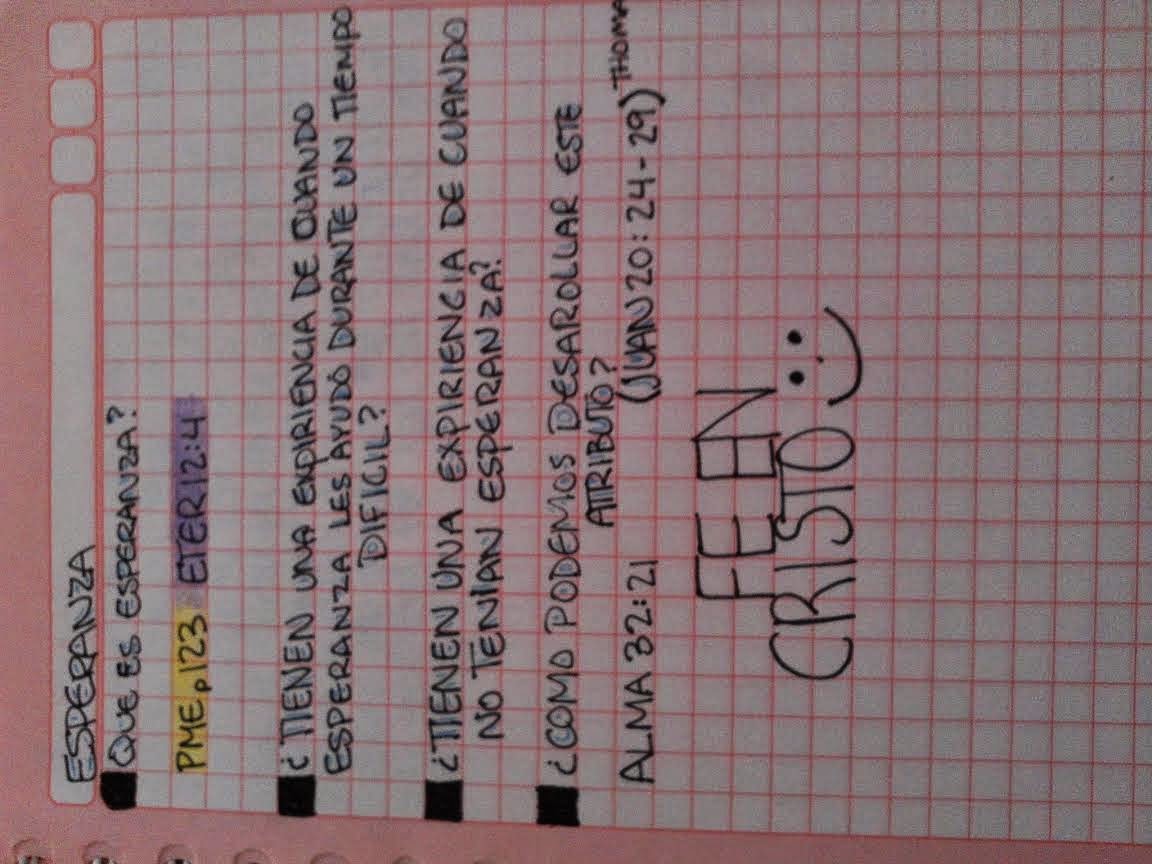 ESPERANZA
QUE ES ESPERANZA?
PME p.123 ETER 12:4
¿TIENEN UNA EXPIRIENCIA DE CUANDO
ESPERANZA LES AYUDÓ DURANTE UN TIEMPO
DIFICIL?
¿TIENEN UNA EXPIRIENCIA DE CUANDO
NO TENÍAN ESPERANZA?
¿COMO PODEMOS DESAROLLAR ESTE
ATRIBUTO?
ALMA 32:21 (JUAN 20:24-29) THOMA
FE EN
CRISTO